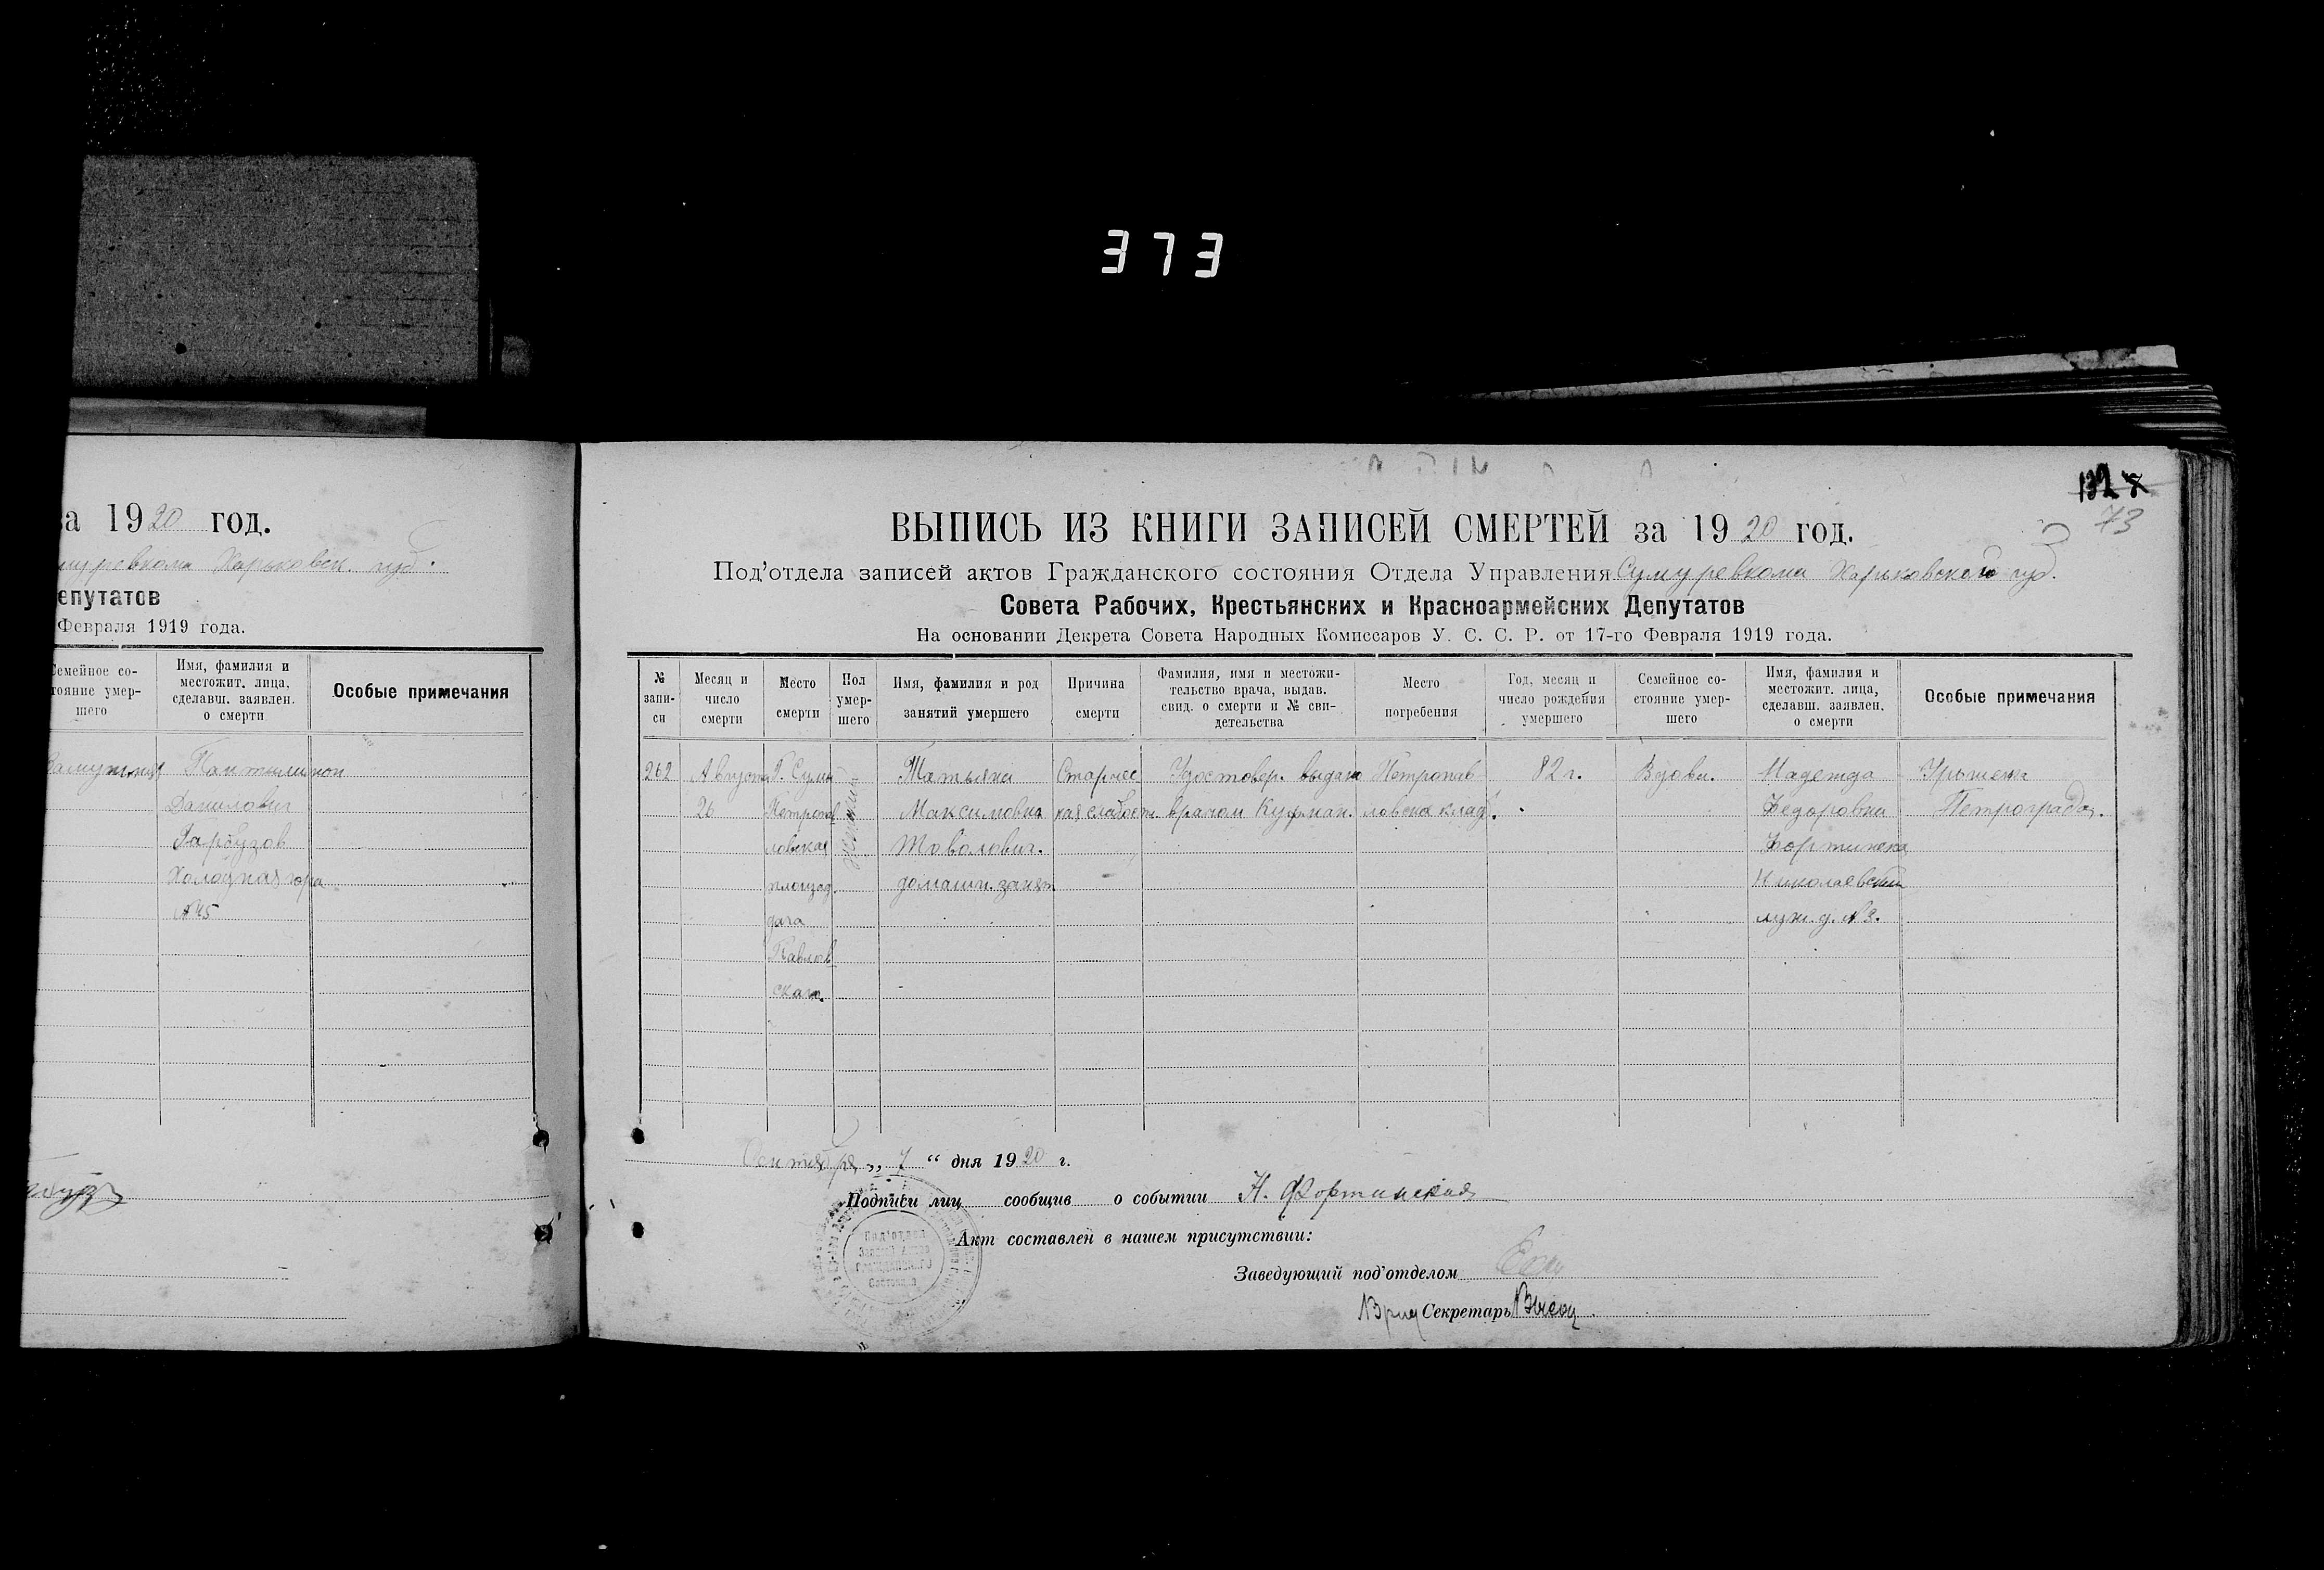 373
за 1920 год.
Харьковск. губ.
епутатов
Февраля 1919 года.
Семейное со-
тояние умер-
шего
Имя, фамилия и
местожит. лица,
сделавш. заявлен.
о смерти
Особые примечания
Замужняя
Пантилимон
Данилович
Гарбузов
Холодная гора
№45
132
73
ВЫПИСЬ ИЗ КНИГИ ЗАПИСЕЙ СМЕРТЕЙ за 1920 год.
Под'отдела записей актов Гражданского состояния Отдела Управления Сумуревкома Харьковской губ.
Совета Рабочих, Крестьянских и Красноармейских Депутатов
На основании Декрета Совета Народных Комиссаров У. С. С. Р. от 17-го Февраля 1919 года.
№
запи-
си
Месяц и
число
смерти
Место
смерти
Пол
умер-
шего
Имя, фамилия и род
занятий умершего
Причина
смерти
Фамилия, имя и местожи-
тельство врача, выдав.
свид. о смерти и № сви-
детельства
Место
погребения
Год, месяц и
число рождения
умершего
Семейное со-
стояние умер-
шего
Имя, фамилия и
местожит. лица,
сделавш. заявлен.
о смерти
Особые примечания
262
Августа
26
Г. Сумы
Петропав
ловская
площад.
дача
Павлов
ского.
женский
Татьяна
Максимовна
домашн. занят
Старчес
кая слабость
Удостовер. выдано
врачом Куфман.
Петропав
ловское клад.
82 г.
Вдова.
Надежда
Федоровна
Фортинская
Николаевский
№3.
Петрограда.
Сентября „ 7 “ дня 1920 г.
Подписи лиц сообщив о событии Н. Фортинская
Под'отдел
Записи Актов
Гражданского
Состояния
Акт составлен в нашем присутствии:
Заведующий под'отделом
Врид Секретарь